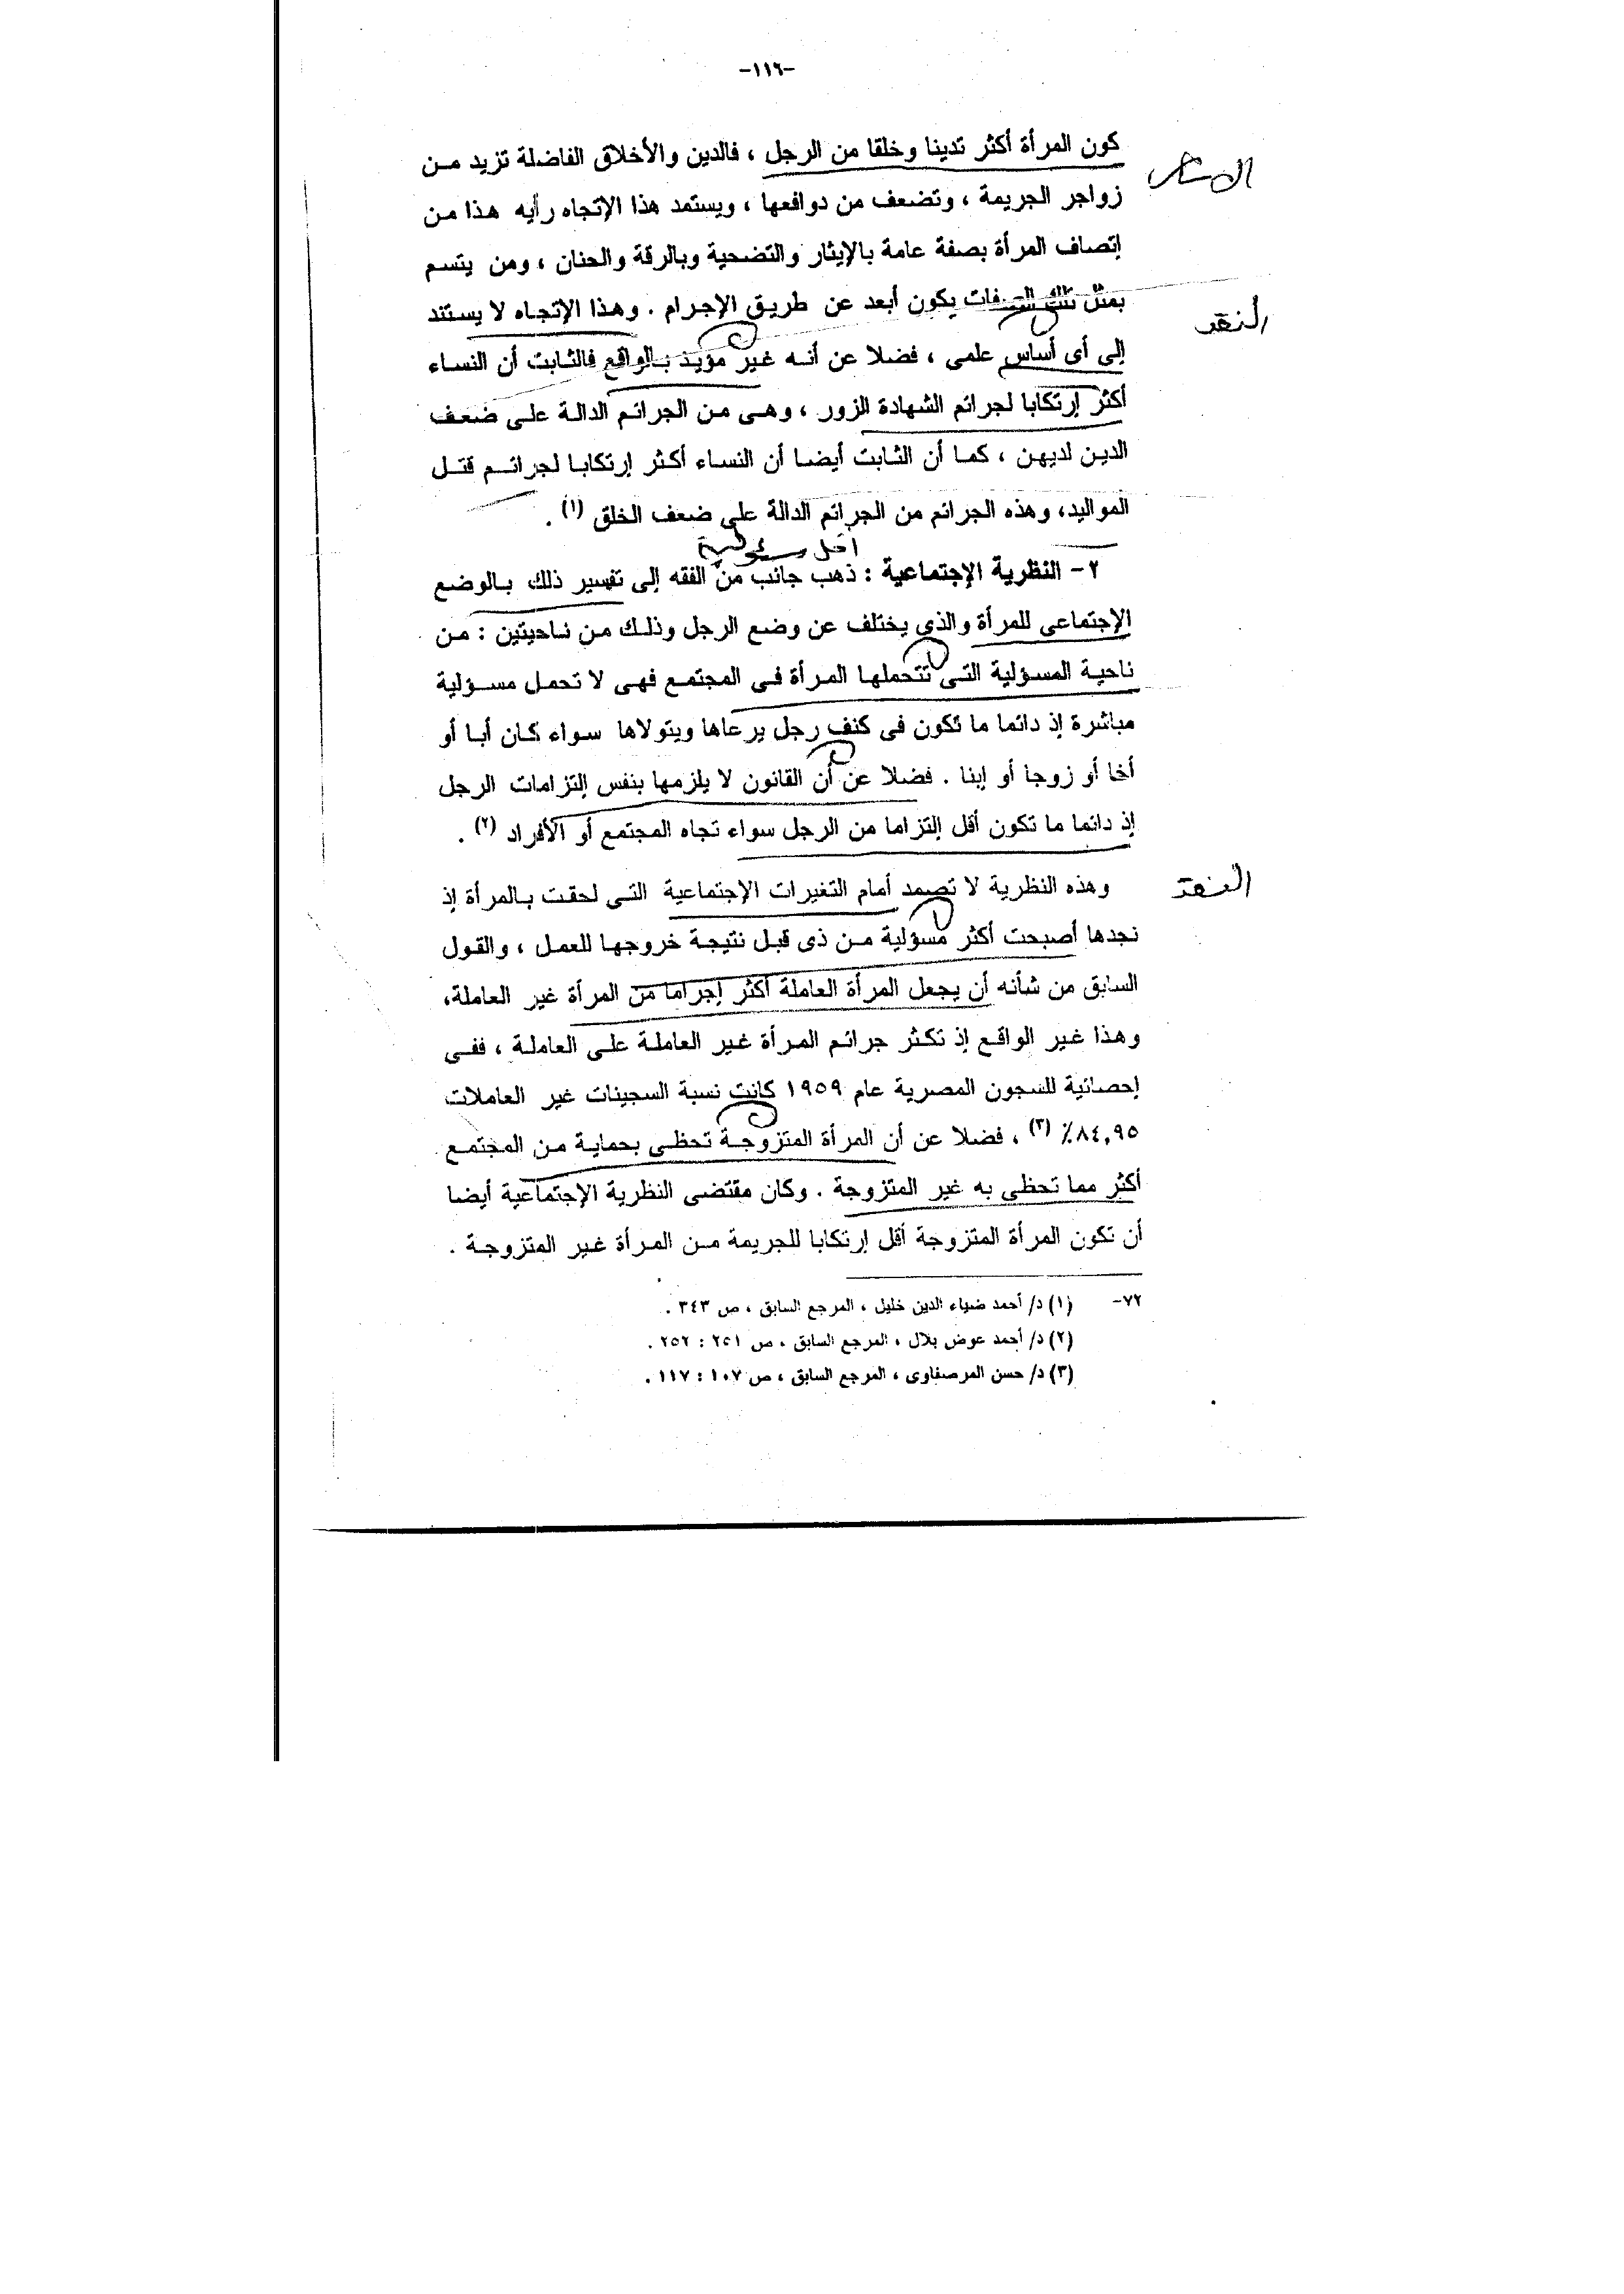 -١١٦-
كون المرأة أكثر تدينا وخلقا من الرجل ، فالدين والأخلاق الفاضلة تزيد من
زواجر الجريمة ، وتضعف من دوافعها ، ويستمد هذا الإتجاه رأيه هذا من
إتصاف المرأة بصفة عامة بالإيثار والتضحية وبالرقة والحنان ، ومن يتسم
بمثل تلك الصفات يكون أبعد عن طريق الإجرام . وهذا الإتجاه لا يستند
النقد
إلى أى أساس علمى ، فضلا عن أنه غير مؤيد بالواقع فالثابت أن النساء
أكثر إرتكابا لجرائم الشهادة الزور ، وهى من الجرائم الدالة على ضعف
الدين لديهن ، كما أن الثابت أيضا أن النساء أكثر إرتكابا لجرائم قتل
المواليد، وهذه الجرائم من الجرائم الدالة على ضعف الخلق (١) .
اقل مسئولية
٢- النظرية الإجتماعية : ذهب جانب من الفقه إلى تفسير ذلك بالوضع
الإجتماعى للمرأة والذى يختلف عن وضع الرجل وذلك من ناحيتين : من
ناحية المسؤلية التى تتحملها المرأة فى المجتمع فهى لا تحمل مسؤلية
مباشرة إذ دائما ما تكون فى كنف رجل يرعاها ويتولاها سواء كان أبا أو
أخا أو زوجا أو إبنا . فضلا عن أن القانون لا يلزمها بنفس إلتزامات الرجل
إذ دائما ما تكون أقل إلتزاما من الرجل سواء تجاه المجتمع أو الأفراد (٢) .
النقد
وهذه النظرية لا تصمد أمام التغيرات الإجتماعية التى لحقت بالمرأة إذ
نجدها أصبحت أكثر مسؤلية من ذى قبل نتيجة خروجها للعمل ، والقول
السابق من شأنه أن يجعل المرأة العاملة أكثر إجراما من المرأة غير العاملة،
وهذا غير الواقع إذ تكثر جرائم المرأة غير العاملة على العاملة ، ففى
إحصائية للسجون المصرية عام ١٩٥٩ كانت نسبة السجينات غير العاملات
٨٤,٩٥٪ (٣) ، فضلا عن أن المرأة المتزوجة تحظى بحماية من المجتمع
أكثر مما تحظى به غير المتزوجة . وكان مقتضى النظرية الإجتماعية أيضا
أن تكون المرأة المتزوجة أقل إرتكابا للجريمة من المرأة غير المتزوجة .
٧٢- (١) د/ أحمد ضياء الدين خليل ، المرجع السابق ، ص ٣٤٣ .
(٢) د/ أحمد عوض بلال ، المرجع السابق ، ص ٢٥١ : ٢٥٢ .
(٣) د/ حسن المرصفاوى ، المرجع السابق ، ص ١٠٧ : ١١٧ .